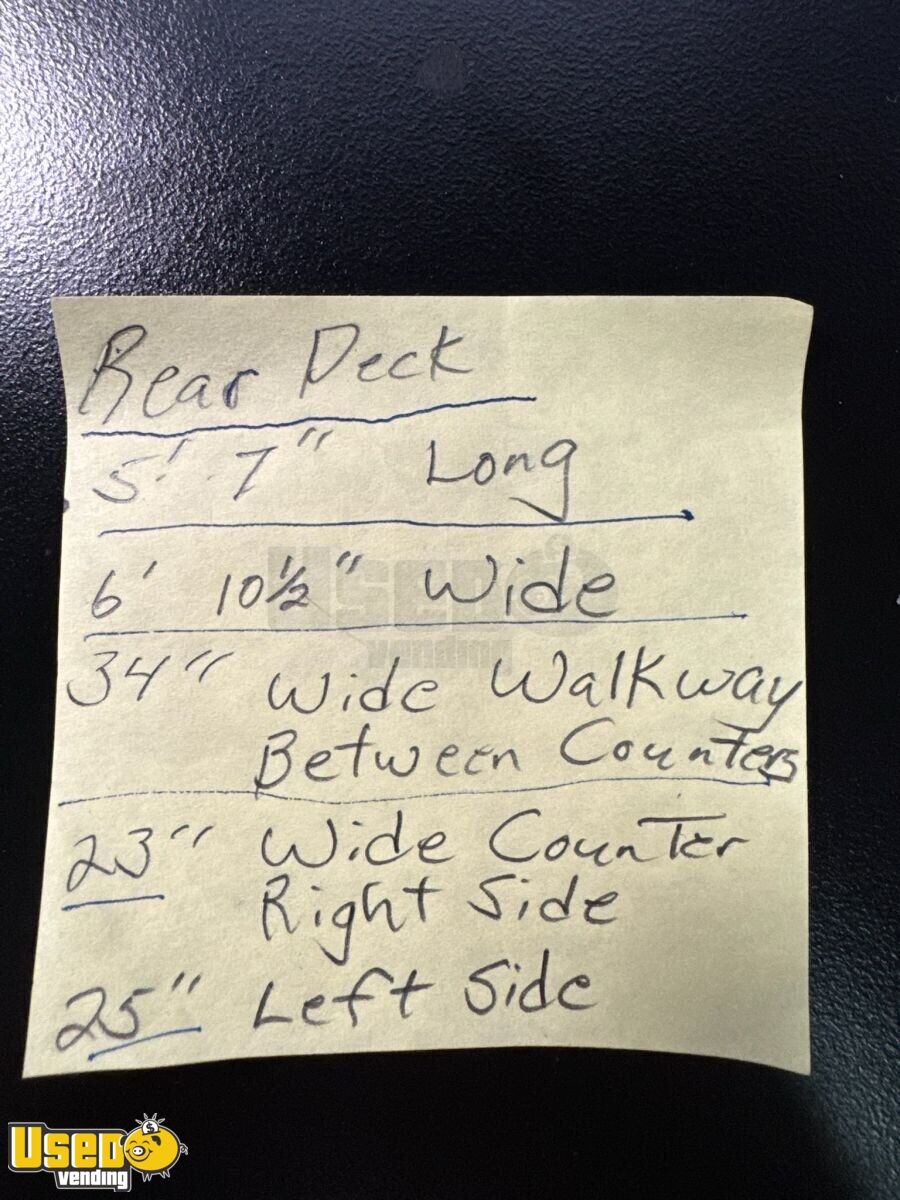 Rear Deck
5' 7" Long
6' 10½" Wide
34" Wide Walkway
Between Counters
23" Wide Counter
Right Side
25" Left Side
USED
vending
USED
vending